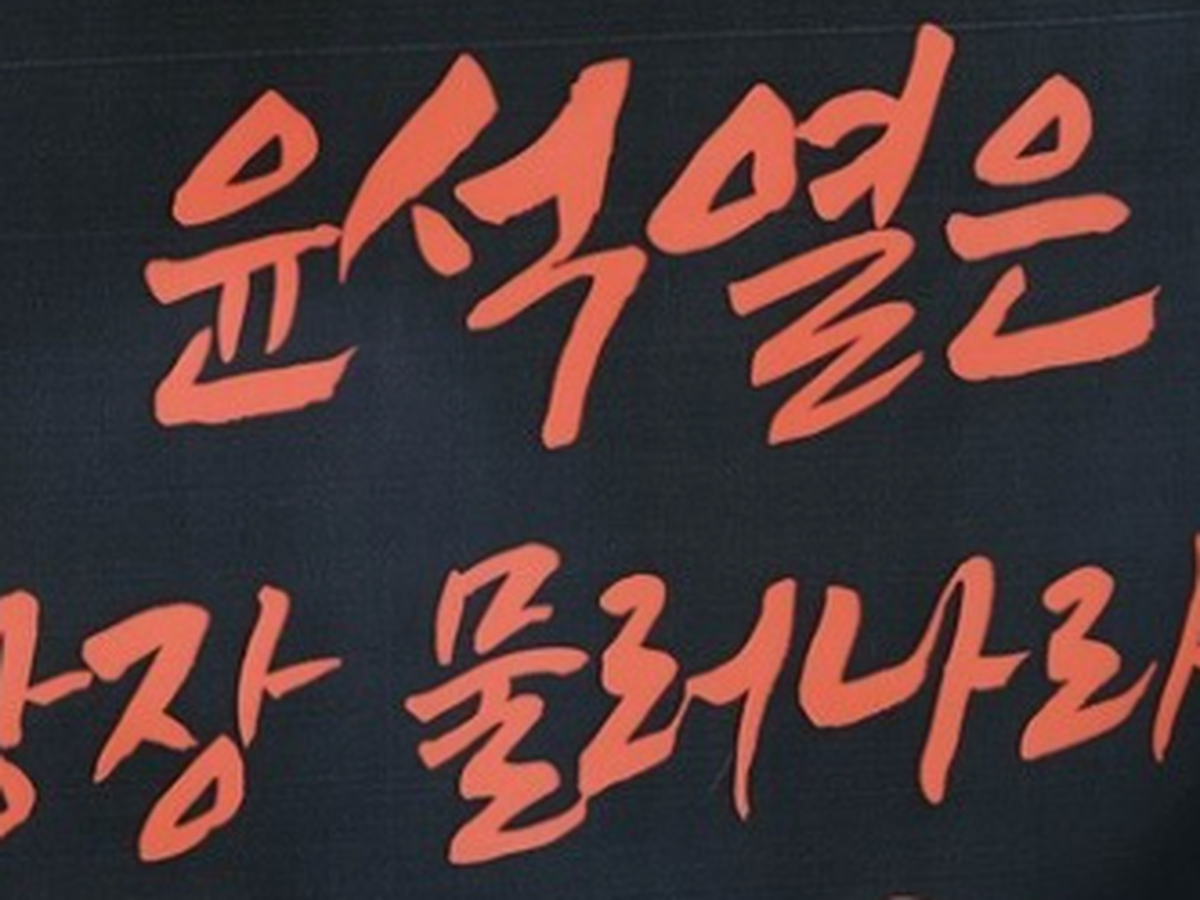 윤석열은
당장 물러나라